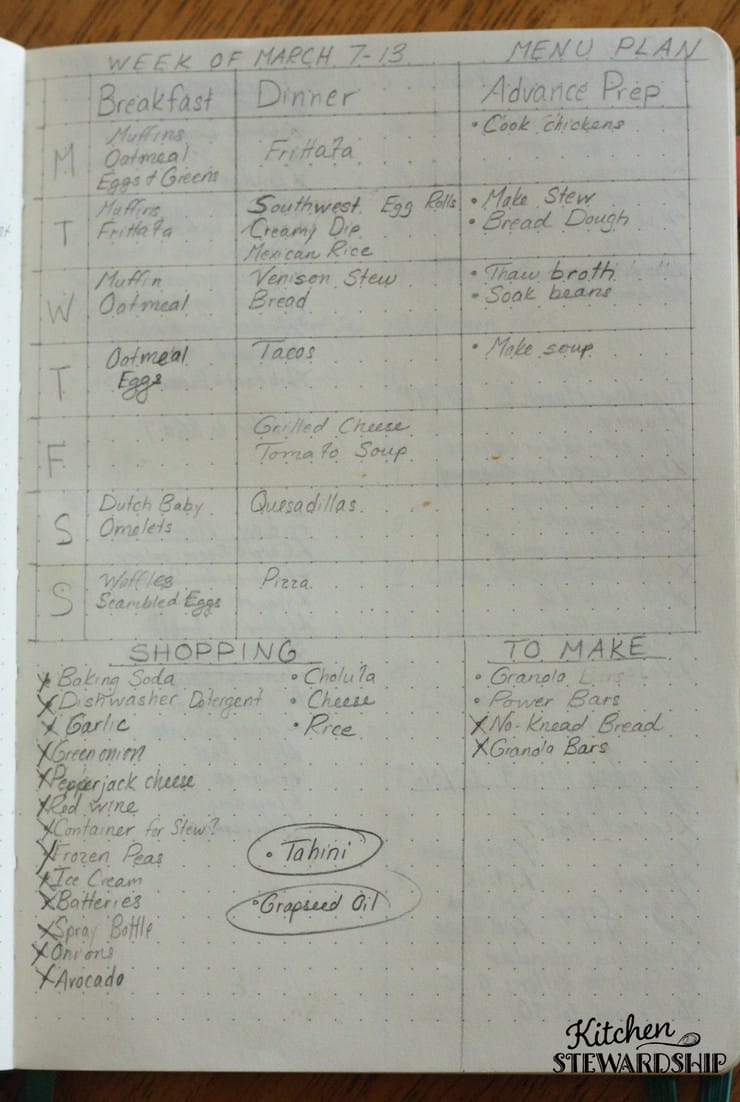 WEEK OF MARCH 7-13 MENU PLAN
Breakfast Dinner Advance Prep
M
Muffins
Oatmeal
Eggs & Greens
Frittata
• Cook chickens
T
Muffins
Frittata
Southwest Egg Rolls
Creamy Dip
Mexican Rice
• Make Stew
• Bread Dough
W
Muffin
Oatmeal
Venison Stew
Bread
• Thaw broth
• Soak beans
T
Oatmeal
Eggs
Tacos
• Make soup
F
Grilled Cheese
Tomato Soup
S
Dutch Baby
Omelets
Quesadillas
S
Waffles
Scrambled Eggs
Pizza
SHOPPING
X Baking Soda
X Dishwasher Detergent
X Garlic
X Green onion
X Pepperjack cheese
X Red wine
X Container for Stew?
X Frozen Peas
X Ice Cream
X Batteries
X Spray Bottle
X Onions
X Avocado
• Cholula
• Cheese
• Rice
• Tahini
• Grapseed Oil
TO MAKE
• Granola Bars
• Power Bars
X No-Knead Bread
X Granola Bars
Kitchen
STEWARDSHIP